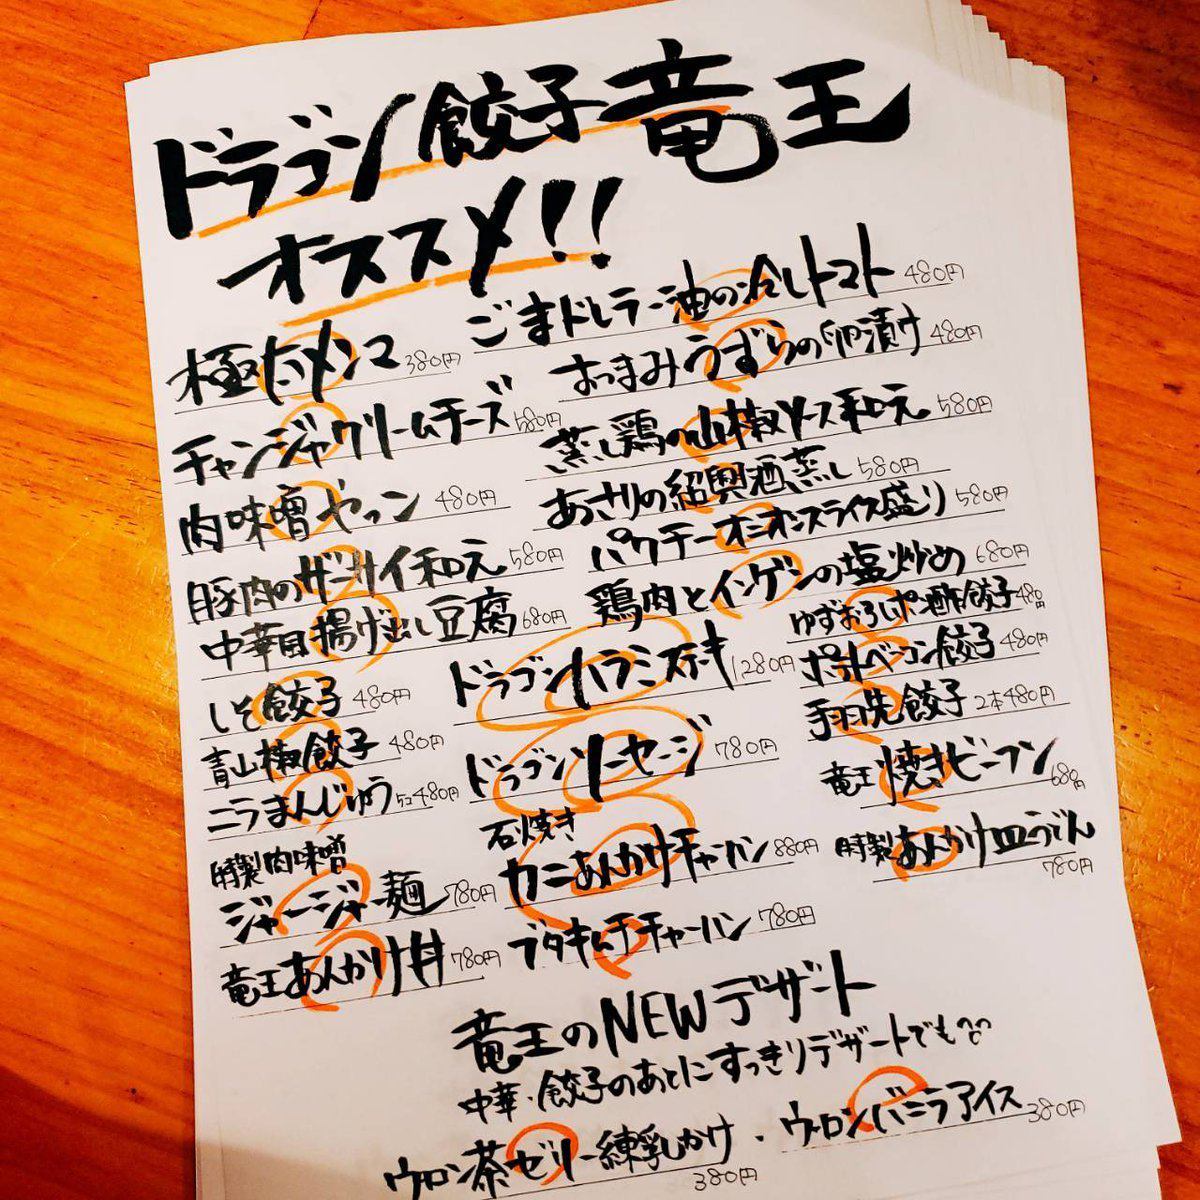 ドラゴン餃子竜王
オススメ!!
ごまドレラー油の冷しトマト 480円
極太メンマ 380円
おつまみうずらの卵漬け 480円
チャンジャクリームチーズ 580円
蒸し鶏の山椒ソース和え 580円
肉味噌ヤッコ 480円
あさりの紹興酒蒸し 580円
豚肉のザーサイ和え 580円
パクチーオニオンスライス盛り 580円
中華風揚げ出し豆腐 680円
鶏肉とインゲンの塩炒め 680円
ゆずおろしポン酢餃子 480円
しそ餃子 480円
ドラゴンハラミステーキ 1,280円
ポテトベーコン餃子 480円
青山椒餃子 480円
手羽先餃子 2本480円
ニラまんじゅう 5コ480円
ドラゴンソーセージ 780円
竜王焼きビーフン 680円
特製肉味噌
ジャージャー麺 780円
石焼き
カニあんかけチャーハン 880円
特製あんかけ皿うどん 780円
竜王あんかけ丼 780円
ブタキムチチャーハン 780円
竜王のNEWデザート
中華・餃子のあとにすっきりデザートでも
ウーロン茶ゼリー練乳かけ 380円
・ウーロンバニラアイス 380円